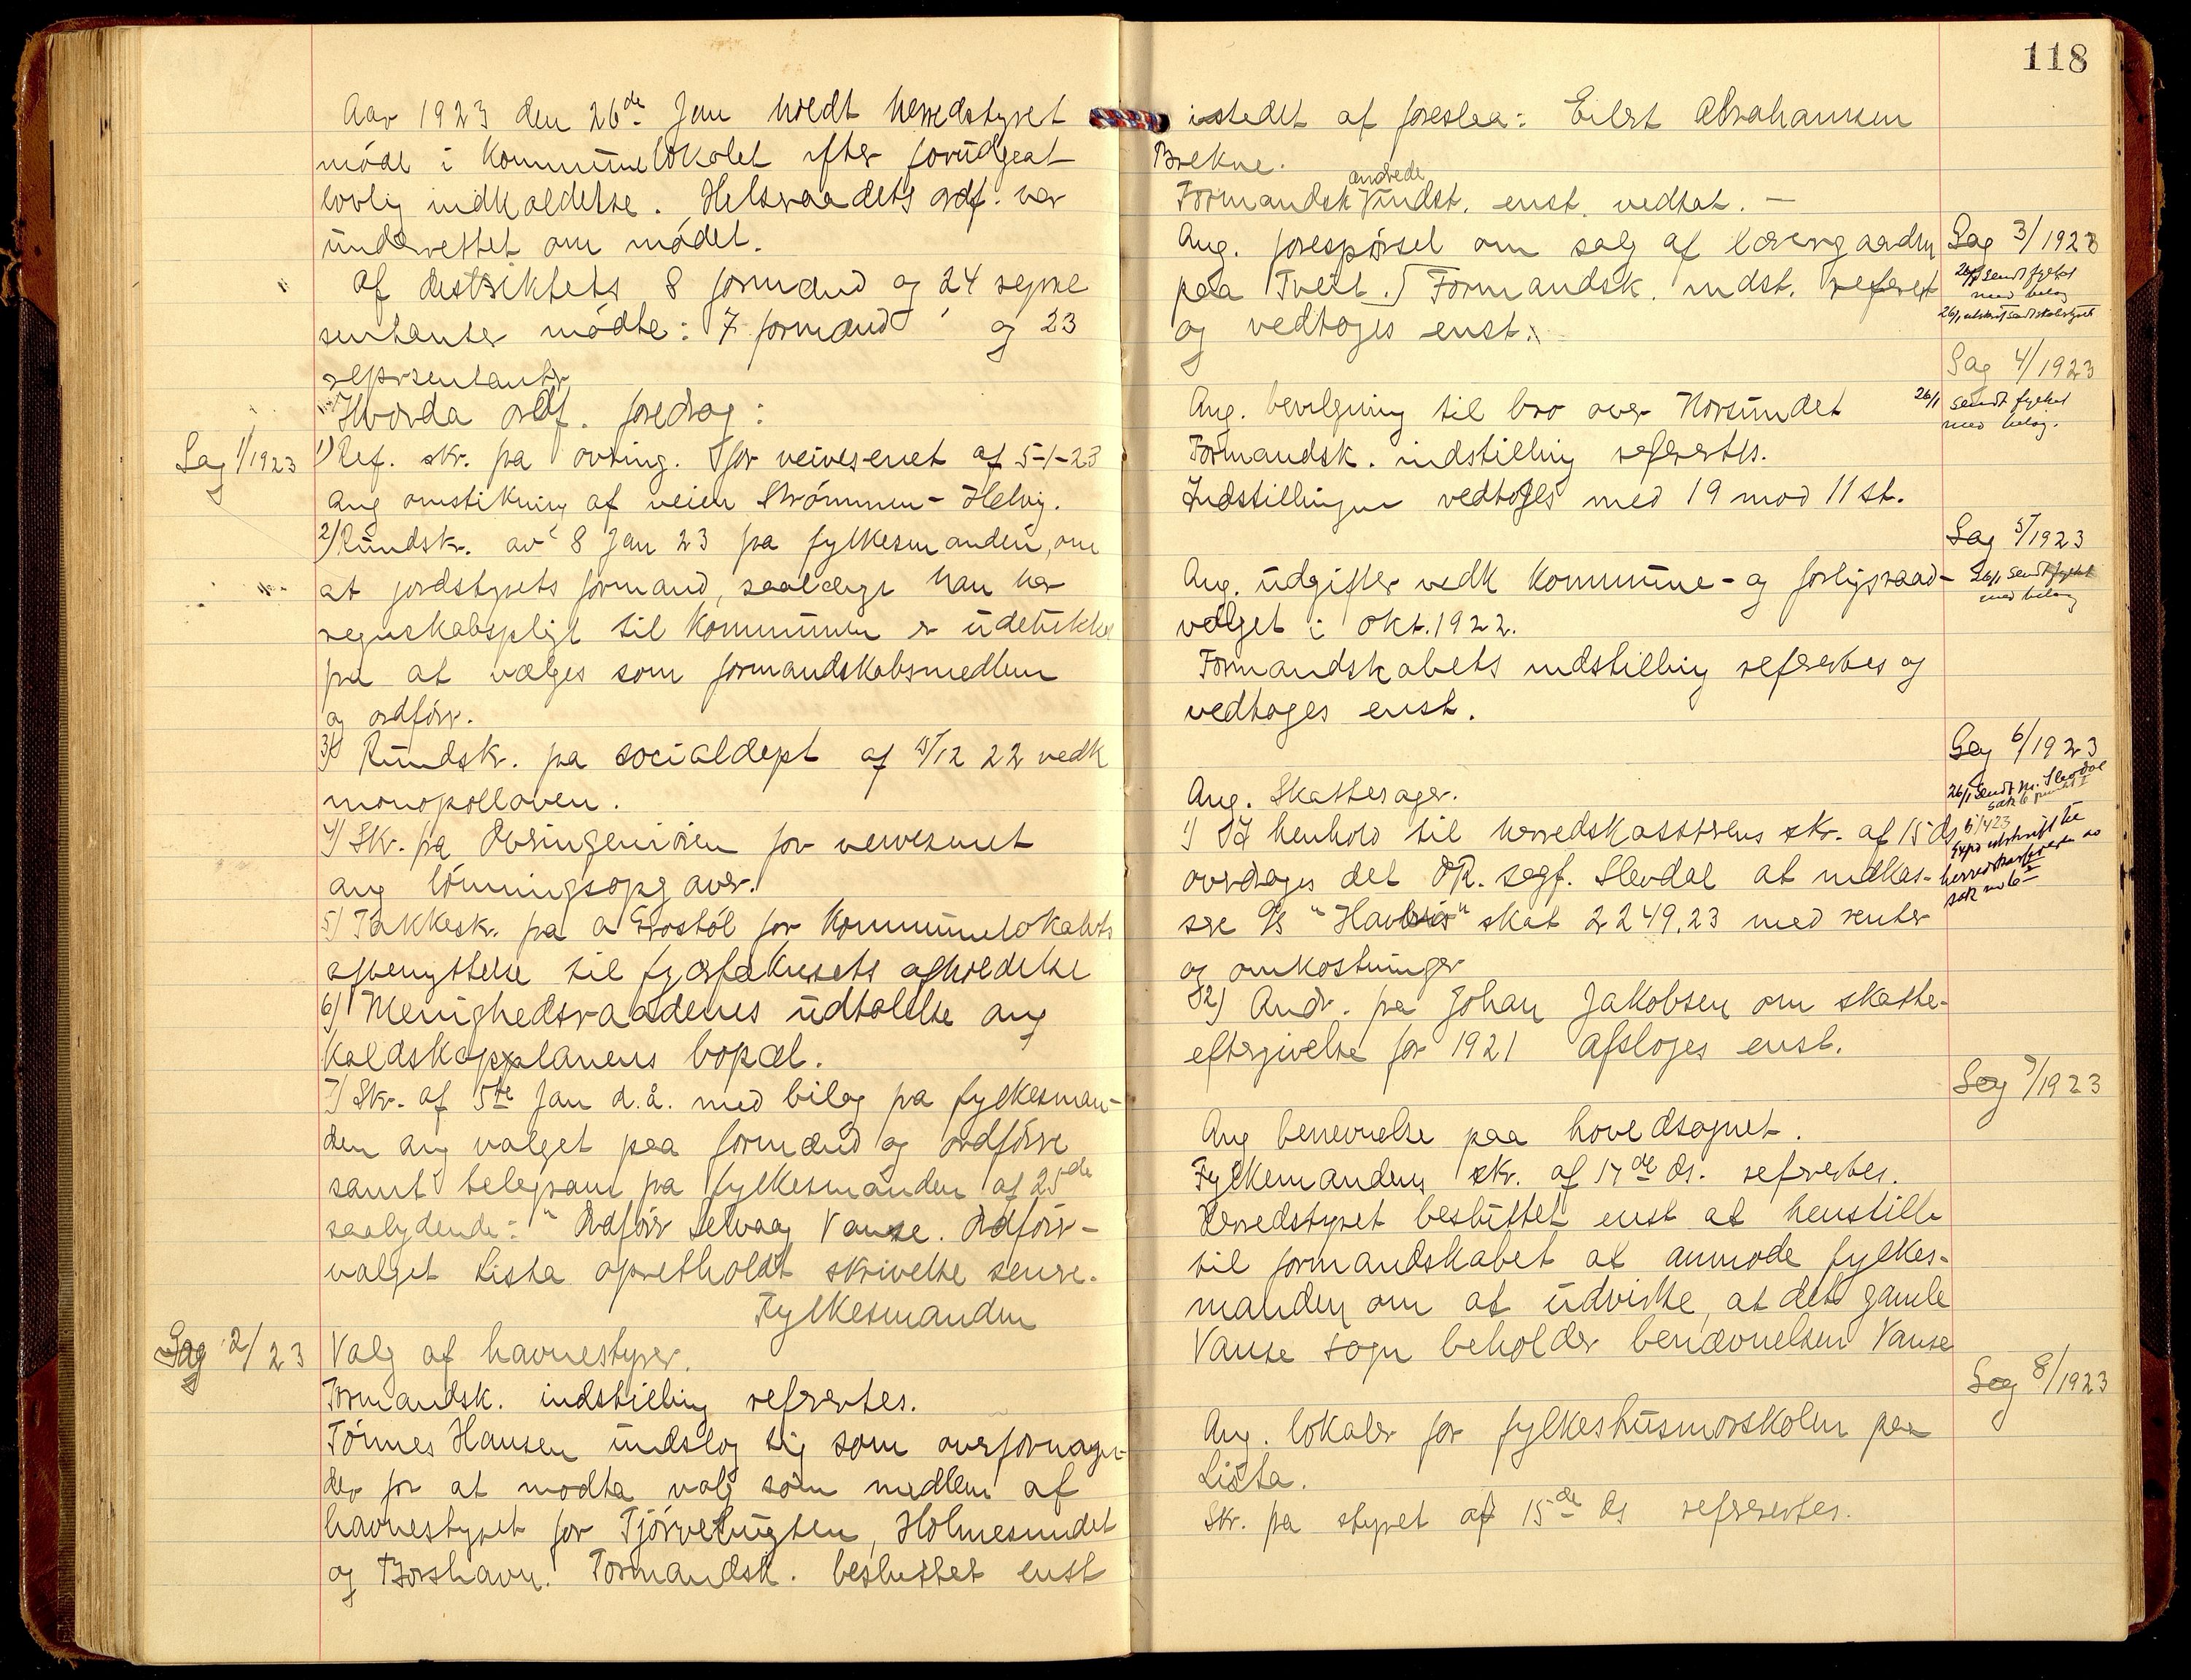 Aar 1923 den 26de Jan holdt herredstyret
møde i kommunelokalet efter forudgeat
lovlig indkaldelse. Helseraadets ordf. var
underrettet om mødet.
Af destriktets 8 formænd og 24 repre
sentanter mødte: 7 formænd og 23
reprsentantr
Hvorda ordf. foredrog:
Sag 1/1923
1) Ref. skr. fra oving. for veivesenet af 5-1-23
ang omstikning af veien Strømmen - Helvig.
2) Rundskr. av 8 Jan 23 fra fylkesmanden, om
at jordstyrets formand, saalænge han har
regnskabspligt til kommunen er udelukke
fra at vælges som formandskabsmedlem
og ordfører.
3) Rundsk. fra socialdept af 15/12 22 vedk
monopolloven.
4) Skr. fra Overingeniøren for veivesenet
ang lønningsopgaver.
5) Takkesk. fra A Frostøl for kommunelokalets
afbenyttelse til fjærfekursets afholdelse
6) Menighedsraadenes udtalelse ang
kaldskapplanens bopæl.
7) Skr. af 5te Jan d.å. med bilag fra fylkesman-
den ang valget paa formænd og ordføre
samt telegram fra fylkesmanden af 25de
saalydende: "Ordfører Selvaag Vanse. Ordfører-
valget Lista opretholdt skrivelse senre.
Fylkesmanden
Sag 2/23
Valg af havnestyrer.
Formandsk. indstilling refertes.
Tønnes Hansen undslog sig som overformyn-
der for at modta valg som medlem af
havnestyret for Tjørvebugten, Holmesundet
og Borshavn. Formandsk. besluttet enst
118
istedet af foreslaa: Eilert Abrahamsen
Brekne.
andrede
Formandsk indst. enst. vedtat. -
Sag 3/1923
Ang. forespørsel om salg af lærergaarden
26/1 sendt fylket
med bilag
paa Tveit. Formandsk. indst. refert
26/1 utskrift sendt skolestyret
og vedtoges enst.
Sag 4/1923
Ang. bevilgning til bro over Korsundet
26/1 sendt fylket
med bilag.
Formandsk. indstilling refertes.
Indstillingen vedtoges med 19 mod 11 st.
Sag 5/1923
Ang. udgifter vedk kommune- og forligsraad-
26/1 sendt fylket
med bilag
valget i okt. 1922.
Formandskabets indstilling refertes og
vedtoges enst.
Sag 6/1923
26/1 sendt hr. Slevdal
sak 6 punkt I
Ang. Skattesager.
1) I henhold til herredskasserens skr. af 15 ds
overdrages det OR. sagf. Slevdal at indkas-
sere A/S "Havbris" skat 2249.23 med renter
og omkostninger
Exp. utskrift til
herredskassereren av
sak no 6 II
2) Andr. fra Johan Jakobsen om skatte-
eftergivelse for 1921 afsloges enst.
Sag 7/1923
Ang benevnelse paa hovedsognet.
Fylkemandens skr. af 17de ds. refertes.
Herredstyret besluttet enst at henstille
til formandskabet at anmode fylkes-
manden om at udvirke, at det gamle
Vanse sogn beholder benævnelsen Vanse
Sag 8/1923
Ang. lokaler for fylkeshusmorskolen paa
Lista.
Skr. fra styret af 15de ds refertes.